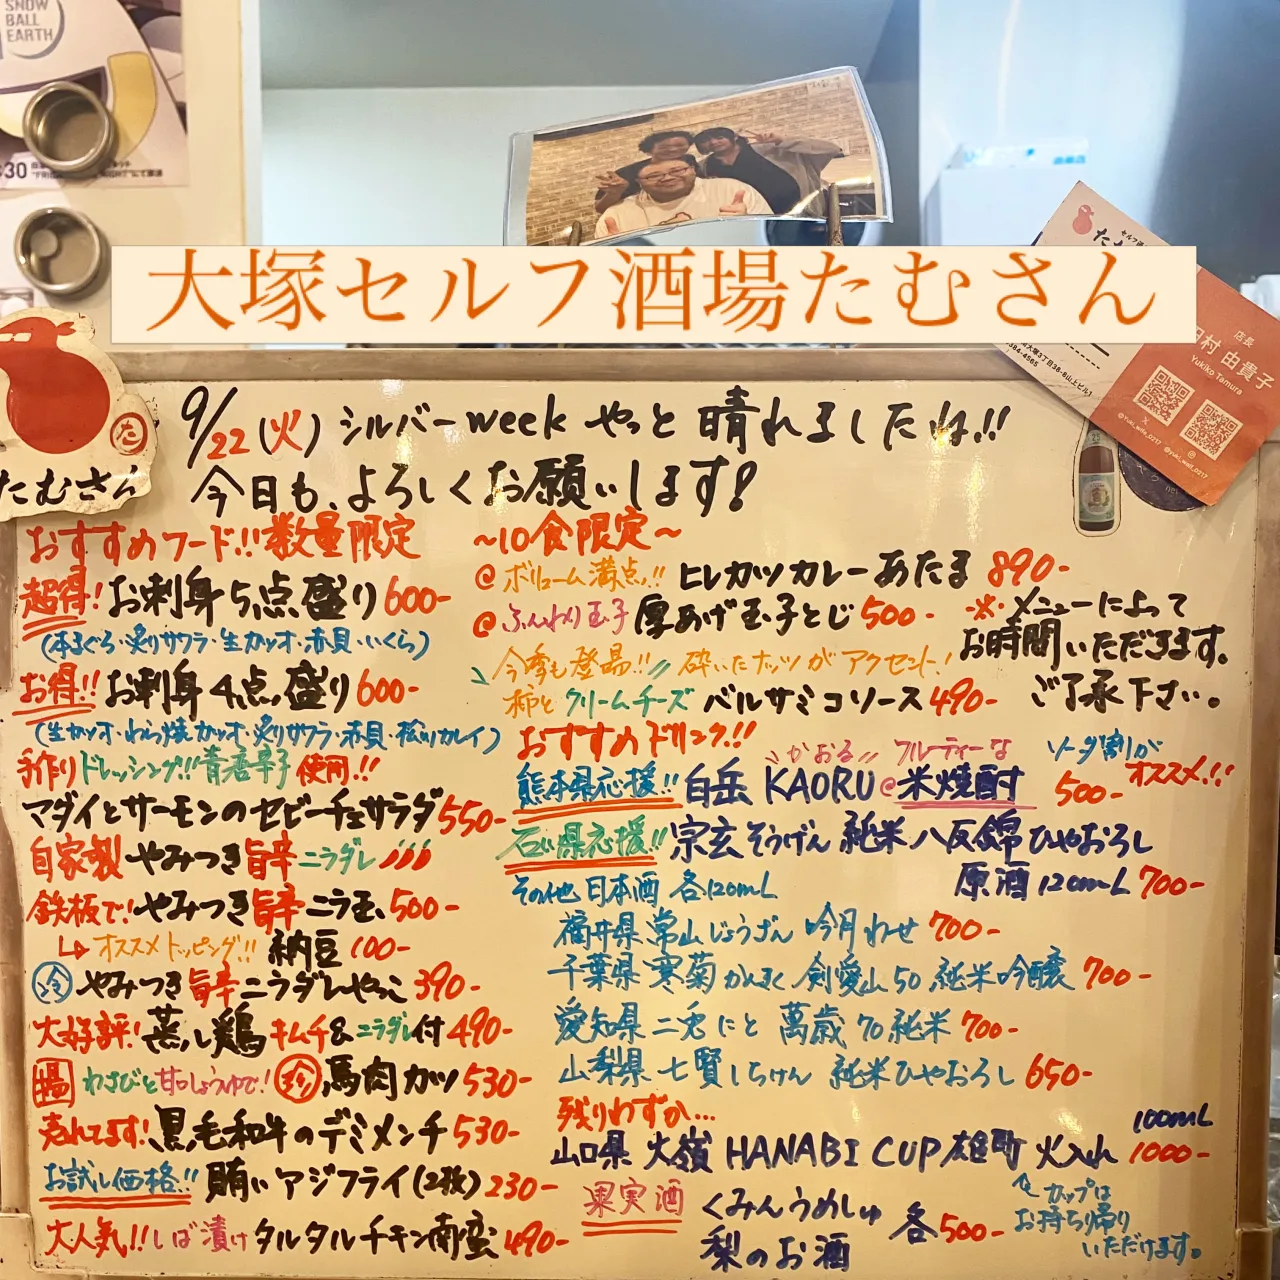 SNOW
BALL
EARTH
大塚セルフ酒場たむさん
店長
田村 由貴子
Yukiko Tamura
@yuki_wait_0217
たむさん
9/22(火) シルバーweek やっと晴れましたね!!
今日も、よろしくお願いします!
おすすめフード!!数量限定
超得! お刺身5点盛り600-
(本まぐろ・炙りサワラ・生カツオ・赤貝・いくら)
お得!! お刺身4点盛り600-
(生カツオ・わら焼カツオ・炙りサワラ・赤貝・松川カレイ)
手作りドレッシング!!青唐辛子使用!!
マダイとサーモンのセビーチェサラダ550-
自家製やみつき旨辛ニラダレ
鉄板で!やみつき旨辛ニラ玉500-
オススメトッピング!! 納豆100-
冷 やみつき旨辛ニラダレやっこ390-
大好評!蒸し鶏キムチ&ニラダレ付490-
揚 わさびと甘口しょうゆで! 珍 馬肉カツ530-
売れてます!黒毛和牛のデミメンチ530-
お試し価格!! 賄いアジフライ(2枚)230-
大人気!!しば漬けタルタルチキン南蛮490-
~10食限定~
@ボリューム満点!! ヒレカツカレーあたま 890-
@ふんわり玉子 厚あげ玉子とじ500-
今季も登場!! 砕いたナッツがアクセント!
柿とクリームチーズ バルサミコソース490-
※メニューによって
お時間いただきます。
ご了承下さい。
おすすめドリンク!!
かおる フルーティーな
熊本県応援!! 白岳 KAORU@米焼酎 500-
ソーダ割が
オススメ!!
石川県応援!! 宗玄そうげん 純米 八反錦ひやおろし
原酒120mL 700-
その他 日本酒 各120mL
福井県 常山じょうざん 吟月わせ 700-
千葉県 寒菊かんぎく 剣愛山50 純米吟醸 700-
愛知県 二兎にと 萬歳70純米 700-
山梨県 七賢しちけん 純米ひやおろし 650-
残りわずか…
山口県 大嶺 HANABI CUP 雄町 火入れ 100mL 1000-
カップは
お持ち帰り
いただけます。
果実酒 くみんうめしゅ
梨のお酒
各500-